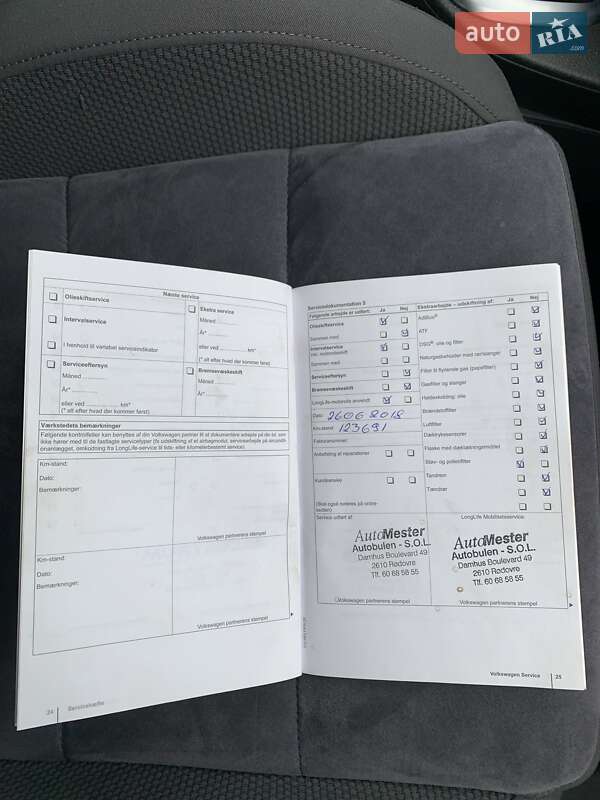 auto RIA.com
Næste service
Olieskiftservice
Intervalservice
I henhold til variabel serviceindikator
Ekstra service
Måned ..........
År* ..........
eller ved .......... km*
(* alt efter hvad der kommer først)
Serviceeftersyn
Måned ..........
År* ..........
eller ved .......... km*
(* alt efter hvad der kommer først)
Bremsevæskeskift
Måned ..........
År* ..........
Værkstedets bemærkninger
Følgende kontrolfelter kan benyttes af din Volkswagen partner til at dokumentere arbejde på din bil, som
ikke hører med til de fastlagte servicetyper (fx udskiftning af et airbagmodul, serviceeftersyn på aircondi-
tionanlægget, omkodning fra LongLife-service til tids- eller kilometerbestemt service).
Km-stand:
Dato:
Bemærkninger:
Volkswagen partnerens stempel
Km-stand:
Dato:
Bemærkninger:
Volkswagen partnerens stempel
24 Servicehæfte
Servicedokumentation 5
Følgende arbejde er udført: Ja Nej
Olieskiftservice
Sammen med
Intervalservice
inkl. motorolieskift
Sammen med
Serviceeftersyn
Bremsevæskeskift
LongLife-motorolie anvendt
Dato: 26062018
Km-stand: 123691
Fakturanummer:
Anbefaling af reparationer
Kundeønske
(Skal også noteres på ordre-
sedlen)
Ekstraarbejde – udskiftning af: Ja Nej
AdBlue®
ATF
DSG®: olie og filter
Naturgasbeholder med rørslanger
Filter til flydende gas (papfilter)
Gasfilter og slanger
Haldexkobling: olie
Brændstoffilter
Luftfilter
Dæktrykssensorer
Flaske med dæktætningsmiddel
Støv- og pollenfilter
Tandrem
Tændrør
Service udført af:
AutoMester
Autobulen - S.O.L.
Damhus Boulevard 49
2610 Rødovre
Tlf. 60 68 58 55
Volkswagen partnerens stempel
LongLife Mobilitetsservice:
AutoMester
Autobulen - S.O.L.
Damhus Boulevard 49
2610 Rødovre
Tlf. 60 68 58 55
Volkswagen partnerens stempel
Volkswagen Service 25